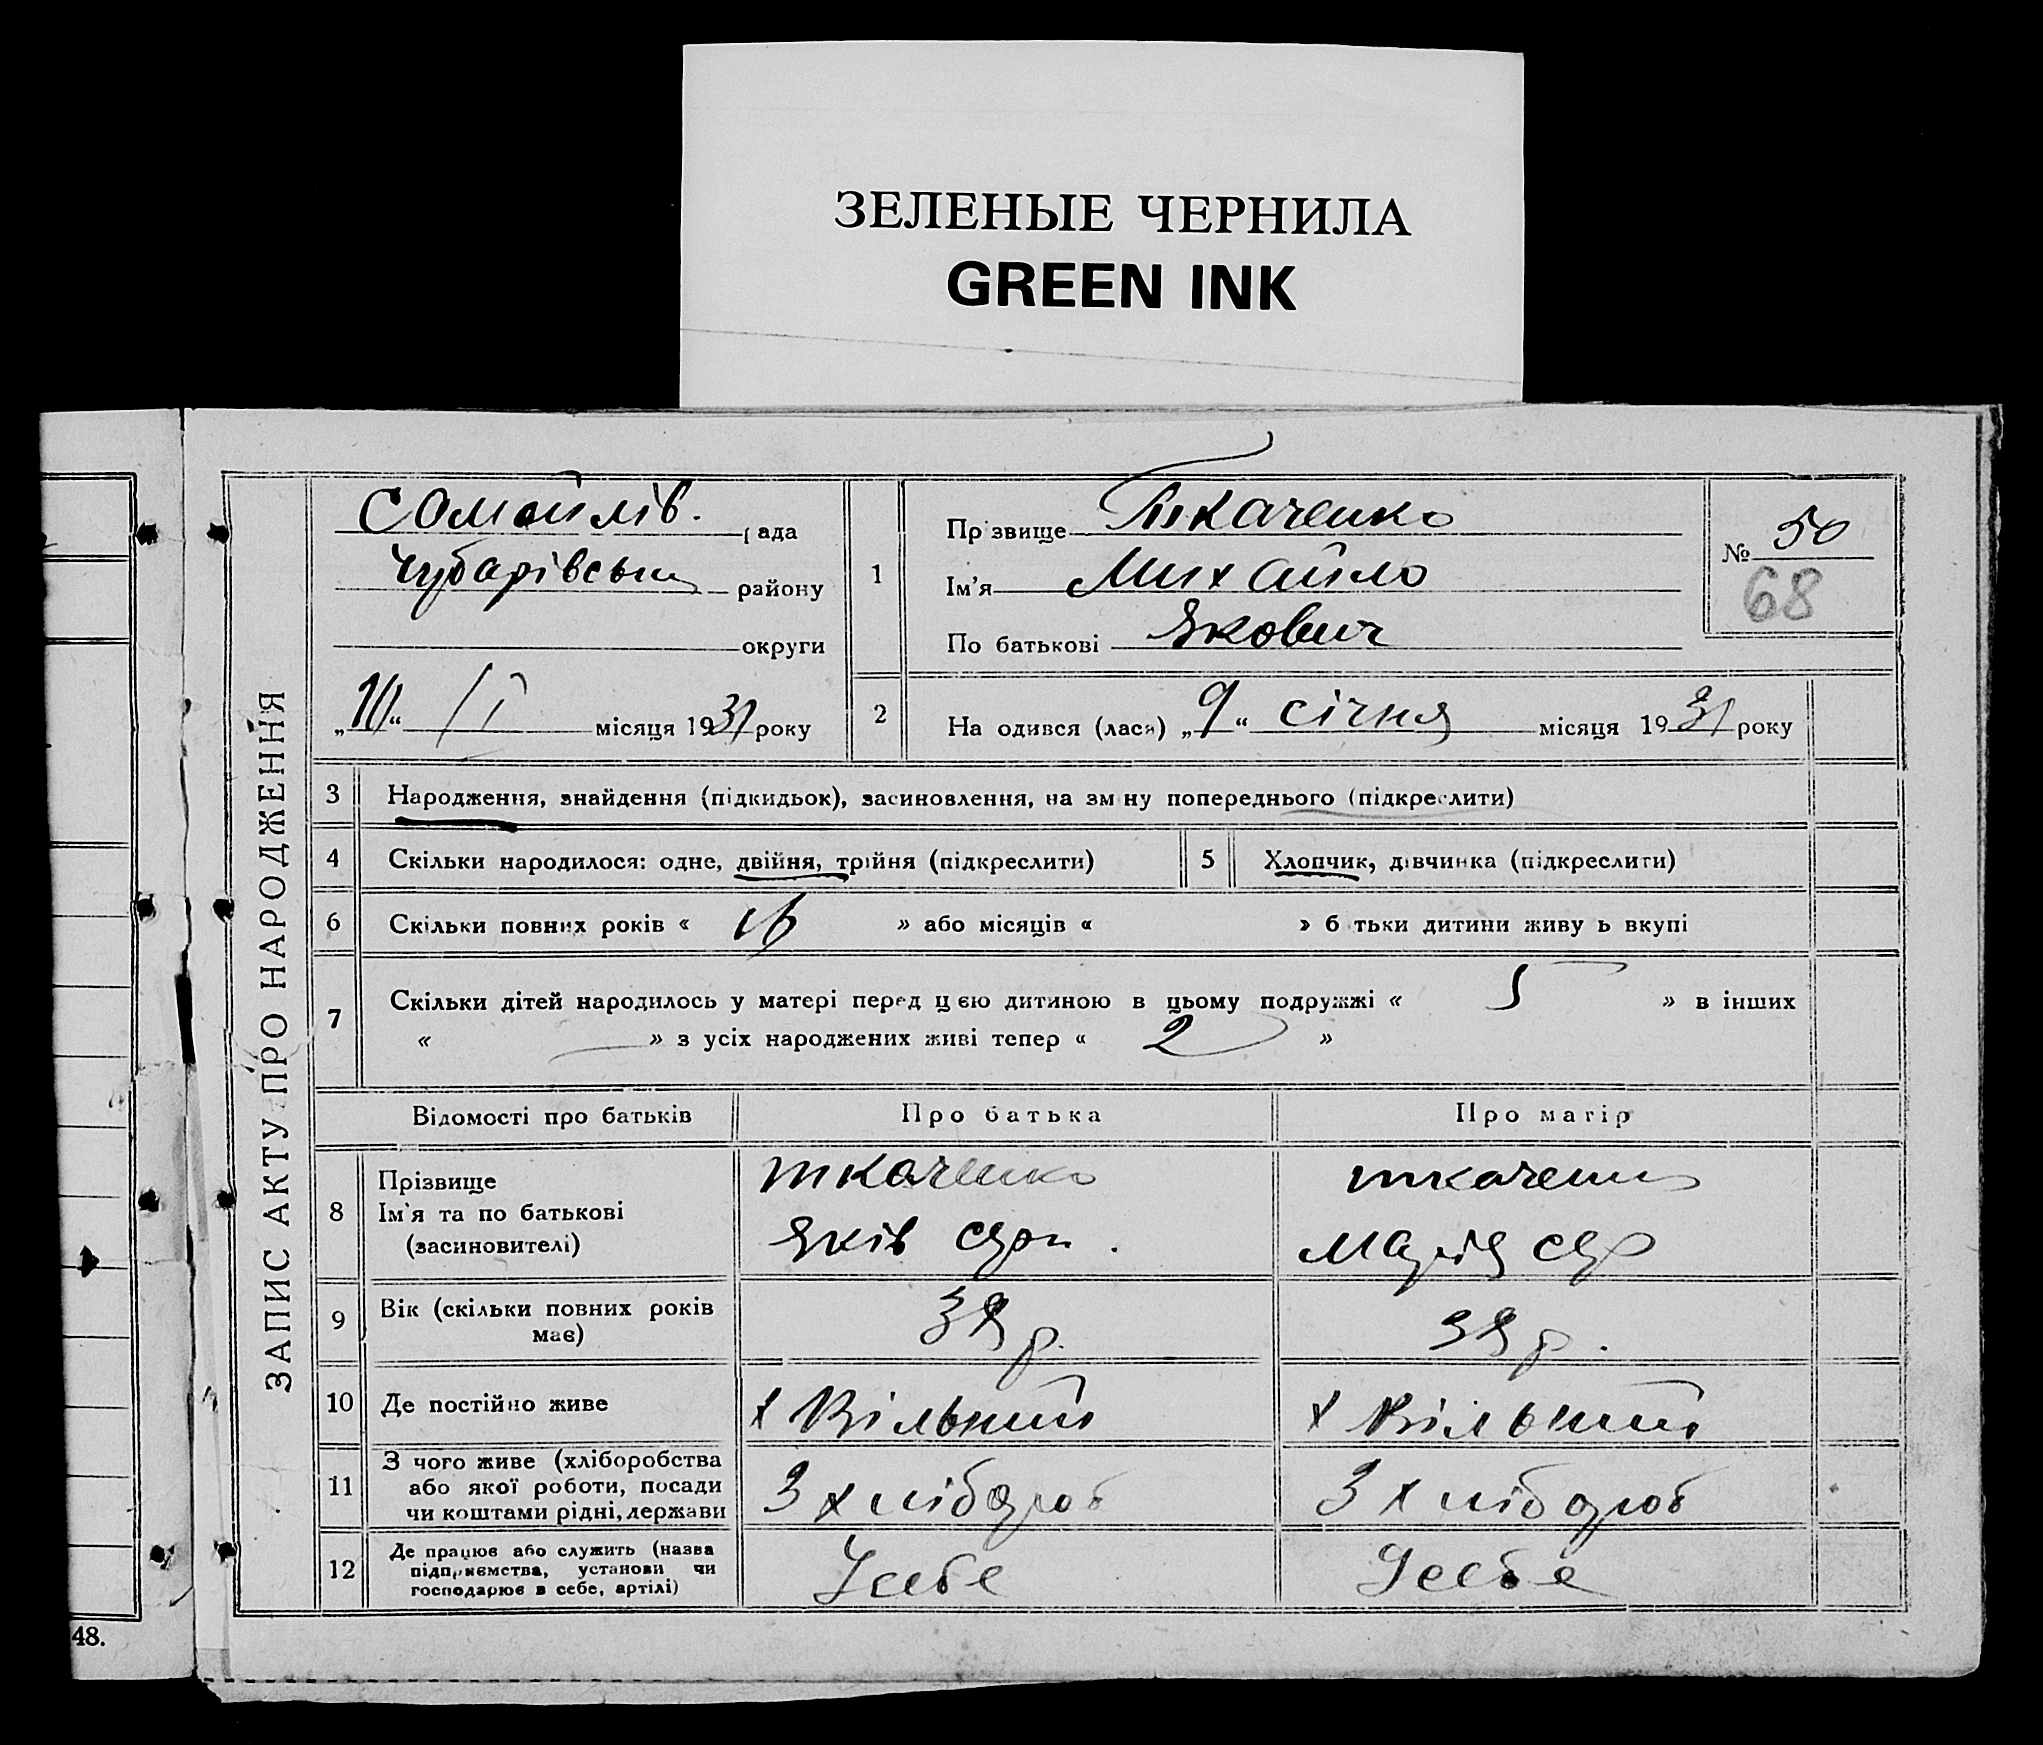 ЗЕЛЕНЫЕ ЧЕРНИЛА
GREEN INK
ЗАПИС АКТУ ПРО НАРОДЖЕННЯ
Сомойлів. рада
Чубарівськ району
округи
„10“ II місяця 1931 року
1
Прізвище Ткаченко
Ім'я Михайло
По батькові Якович
№ 50
68
2 На одився (лася) „9“ січня місяця 1931 року
3 Народження, знайдення (підкидьок), засиновлення, на зм ну попереднього (підкреслити)
4 Скільки народилося: одне, двійня, трійня (підкреслити)
5 Хлопчик, дівчинка (підкреслити)
6 Скільки повних років « » або місяців « » б тьки дитини живу ь вкупі
7 Скільки дітей народилось у матері перед ц єю дитиною в цьому подружжі « 5 » в інших
« — » з усіх народжених живі тепер « 2 »
Відомості про батьків Про батька Про матір
8 Прізвище
Ім'я та по батькові
(засиновителі)
Ткаченко
Яків
Ткаченко
Марія
9 Вік (скільки повних років
має)
38 р.
38 р.
10 Де постійно живе
х Вільний
х Вільний
11 З чого живе (хліборобства
або якої роботи, посади
чи коштами рідні, держави
З хлібороб
З хлібороб
12 Де працює або служить (назва
підприємства, установи чи
господарює в себе, артілі)
У себе
У себе
48.